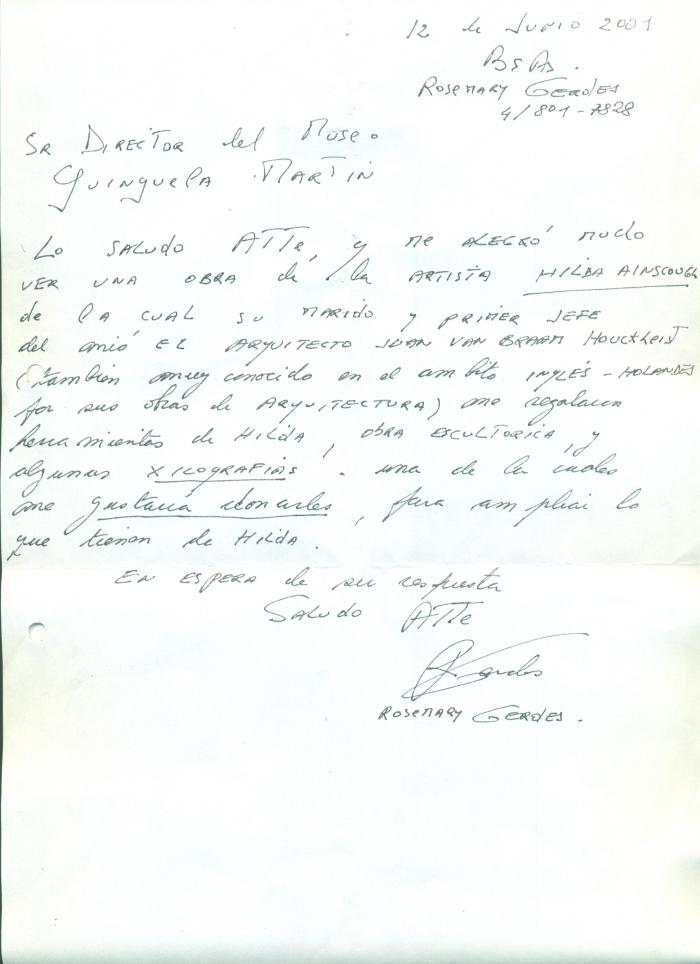 12 de Junio 2001
Bs As.
Rosemary Gerdes
4/801-7828
Sr Director del Museo
Quinquela Martin
Lo saludo Atte, y me alegró mucho
ver una obra de la artista Hilda Ainscough
de la cual su marido y primer jefe
del mió el arquitecto Juan van Braam
(también muy conocido en el ambito inglés-holandes
por sus obras de arquitectura) me regalaron
herramientas de Hilda, obra escultorica, y
algunas xilografias. una de la cuales
me gustaría donarles, para ampliar lo
que tienen de Hilda.
En espera de su respuesta
Saludo Atte
Rosemary Gerdes.